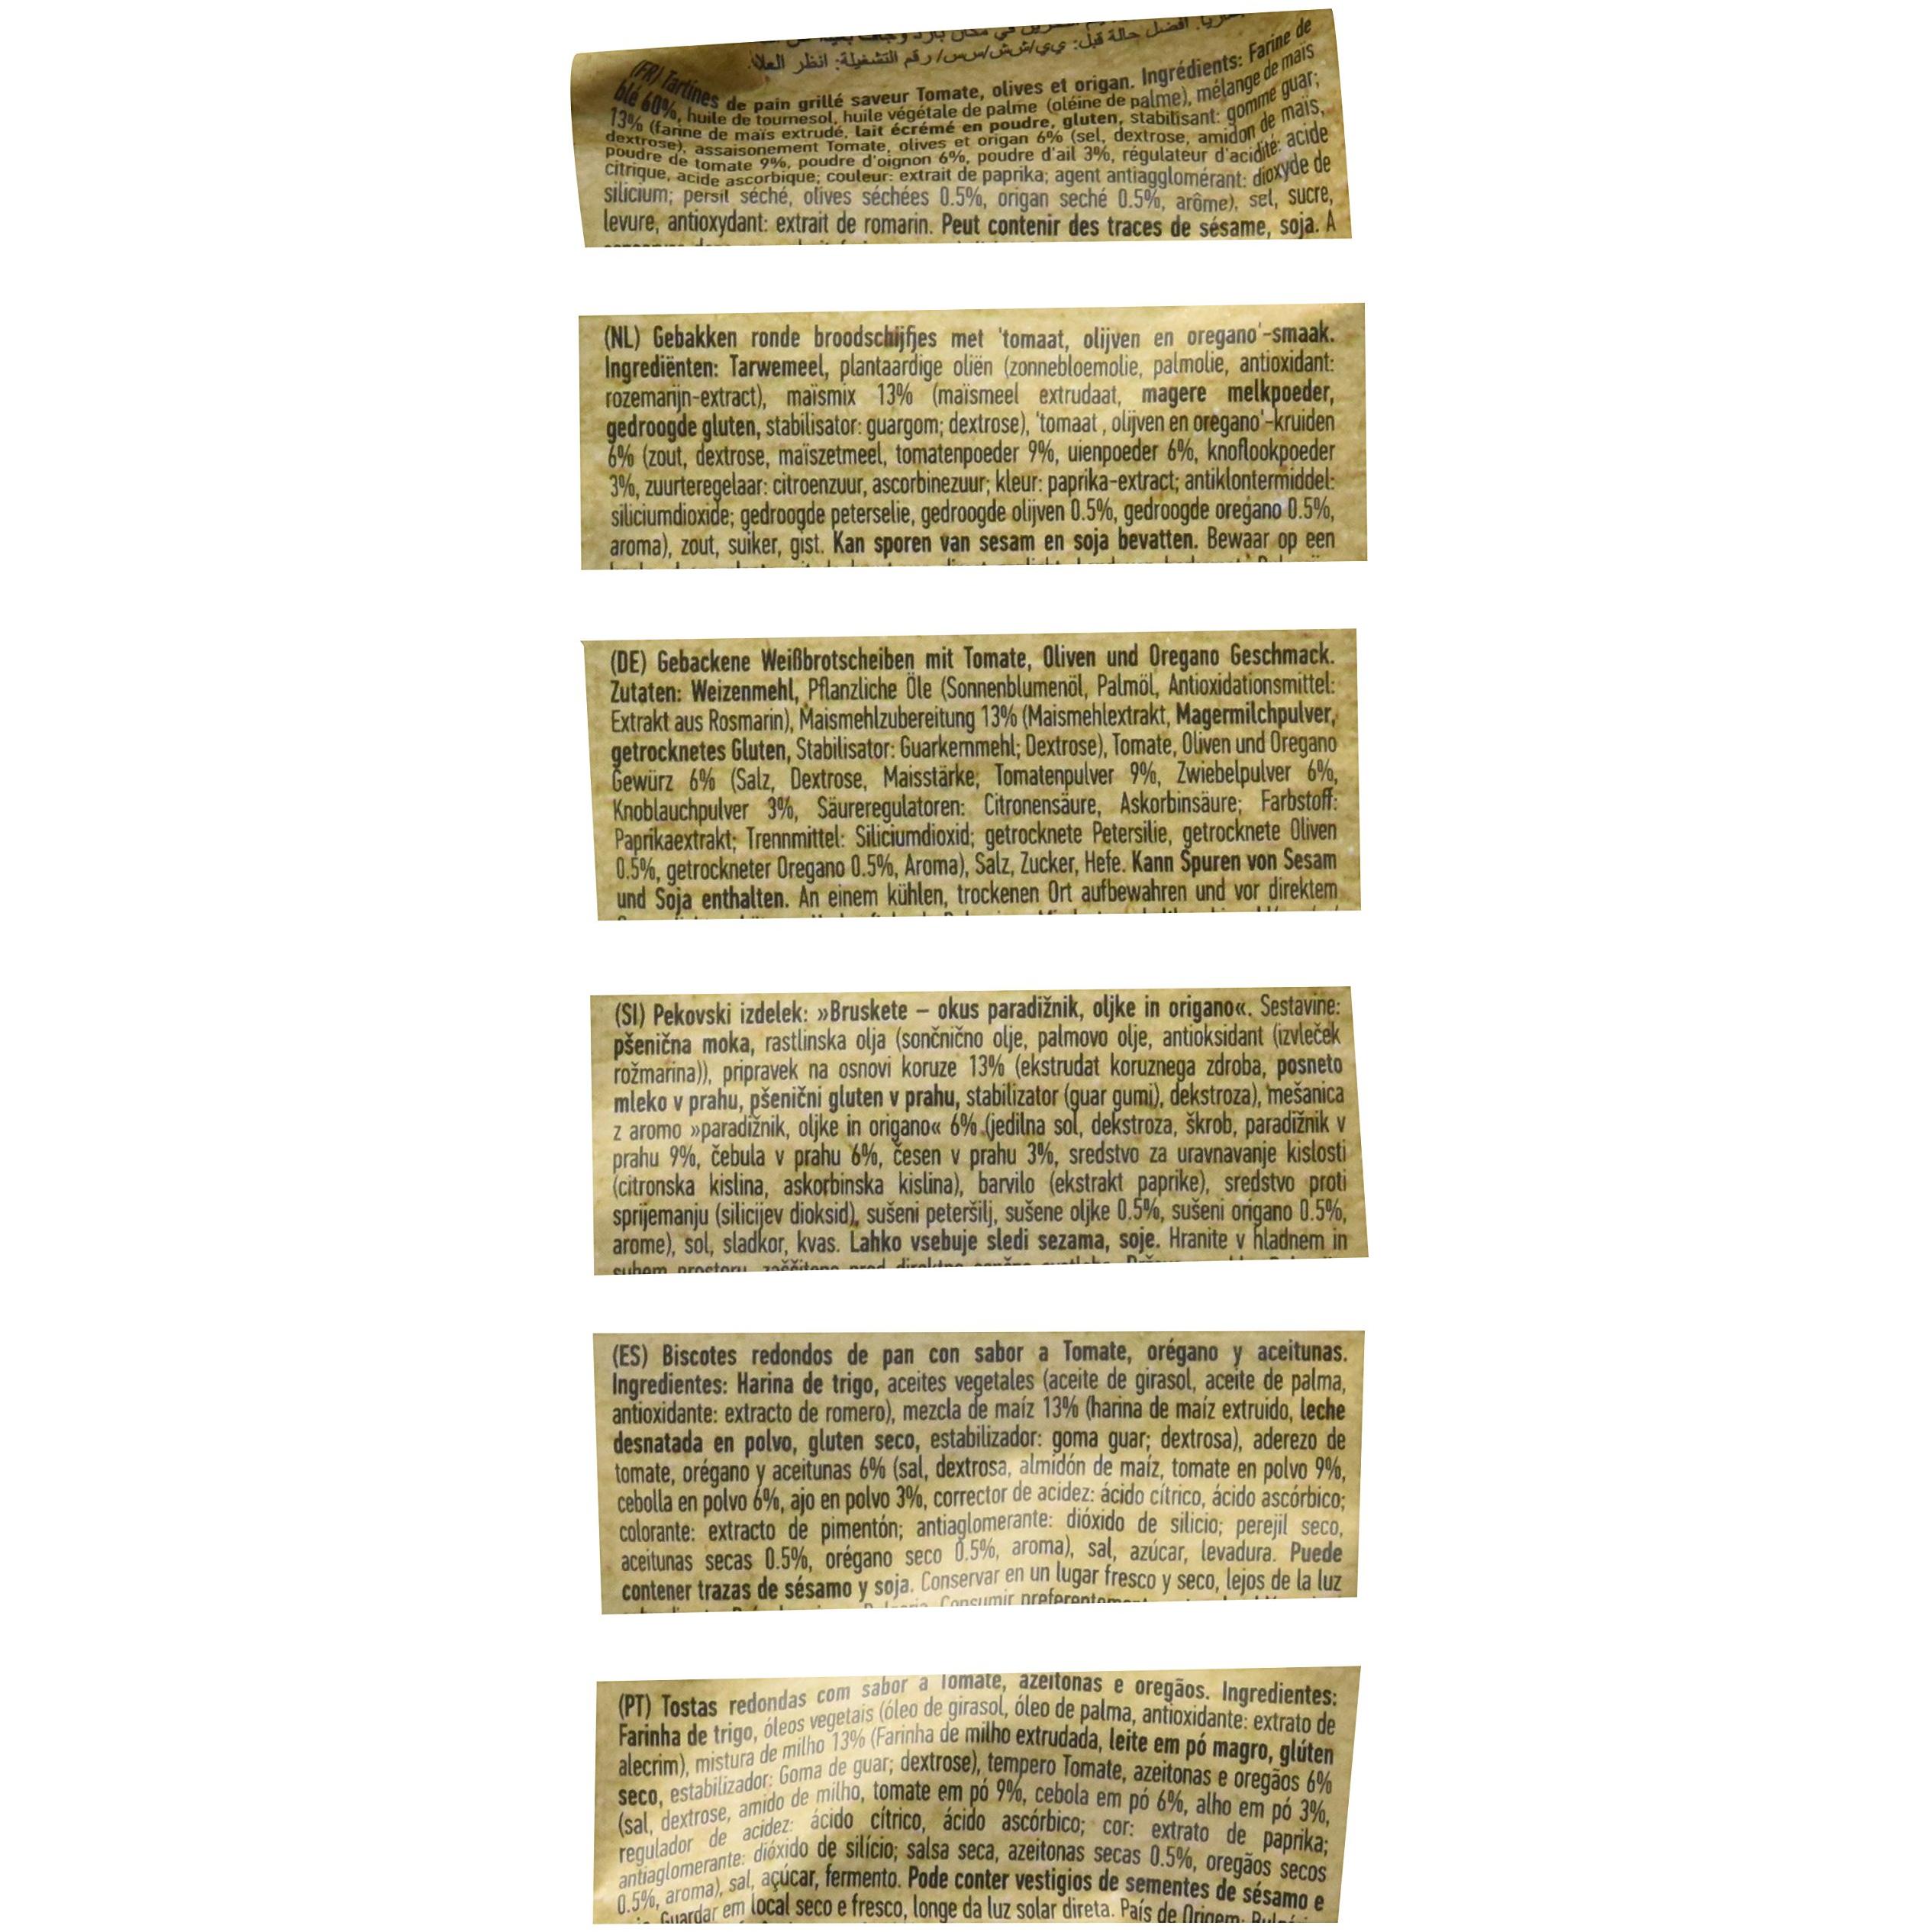 افضل حالة قبل: يي/شش/سس/ رقم التشغيلة: انظر
(FR) Tartines de pain grillé saveur Tomate, olives et origan. Ingrédients: Farine de
blé 60%, huile de tournesol, huile végétale de palme (oléine de palme), mélange de maïs
13% (farine de maïs extrudé, lait écrémé en poudre, gluten, stabilisant: gomme guar;
dextrose), assaisonement Tomate, olives et origan 6% (sel, dextrose, amidon de maïs,
poudre de tomate 9%, poudre d'oignon 6%, poudre d'ail 3%, régulateur d'acidité: acide
citrique, acide ascorbique; couleur: extrait de paprika; agent antiagglomérant: dioxyde de
silicium; persil séché, olives séchées 0.5%, origan seché 0.5%, arôme), sel, sucre,
levure, antioxydant: extrait de romarin. Peut contenir des traces de sésame, soja. A
(NL) Gebakken ronde broodschijfjes met 'tomaat, olijven en oregano'-smaak.
Ingrediënten: Tarwemeel, plantaardige oliën (zonnebloemolie, palmolie, antioxidant:
rozemarijn-extract), maïsmix 13% (maïsmeel extrudaat, magere melkpoeder,
gedroogde gluten, stabilisator: guargom; dextrose), 'tomaat , olijven en oregano'-kruiden
6% (zout, dextrose, maïszetmeel, tomatenpoeder 9%, uienpoeder 6%, knoflookpoeder
3%, zuurteregelaar: citroenzuur, ascorbinezuur; kleur: paprika-extract; antiklontermiddel:
siliciumdioxide; gedroogde peterselie, gedroogde olijven 0.5%, gedroogde oregano 0.5%,
aroma), zout, suiker, gist. Kan sporen van sesam en soja bevatten. Bewaar op een
(DE) Gebackene Weißbrotscheiben mit Tomate, Oliven und Oregano Geschmack.
Zutaten: Weizenmehl, Pflanzliche Öle (Sonnenblumenöl, Palmöl, Antioxidationsmittel:
Extrakt aus Rosmarin), Maismehlzubereitung 13% (Maismehlextrakt, Magermilchpulver,
getrocknetes Gluten, Stabilisator: Guarkernmehl; Dextrose), Tomate, Oliven und Oregano
Gewürz 6% (Salz, Dextrose, Maisstärke, Tomatenpulver 9%, Zwiebelpulver 6%,
Knoblauchpulver 3%, Säureregulatoren: Citronensäure, Askorbinsäure; Farbstoff:
Paprikaextrakt; Trennmittel: Siliciumdioxid; getrocknete Petersilie, getrocknete Oliven
0.5%, getrockneter Oregano 0.5%, Aroma), Salz, Zucker, Hefe. Kann Spuren von Sesam
und Soja enthalten. An einem kühlen, trockenen Ort aufbewahren und vor direktem
(SI) Pekovski izdelek: »Bruskete – okus paradižnik, oljke in origano«. Sestavine:
pšenična moka, rastlinska olja (sončnično olje, palmovo olje, antioksidant (izvleček
rožmarina)), pripravek na osnovi koruze 13% (ekstrudat koruznega zdroba, posneto
mleko v prahu, pšenični gluten v prahu, stabilizator (guar gumi), dekstroza), mešanica
z aromo »paradižnik, oljke in origano« 6% (jedilna sol, dekstroza, škrob, paradižnik v
prahu 9%, čebula v prahu 6%, česen v prahu 3%, sredstvo za uravnavanje kislosti
(citronska kislina, askorbinska kislina), barvilo (ekstrakt paprike), sredstvo proti
sprijemanju (silicijev dioksid), sušeni peteršilj, sušene oljke 0.5%, sušeni origano 0.5%,
arome), sol, sladkor, kvas. Lahko vsebuje sledi sezama, soje. Hranite v hladnem in
(ES) Biscotes redondos de pan con sabor a Tomate, orégano y aceitunas.
Ingredientes: Harina de trigo, aceites vegetales (aceite de girasol, aceite de palma,
antioxidante: extracto de romero), mezcla de maíz 13% (harina de maíz extruido, leche
desnatada en polvo, gluten seco, estabilizador: goma guar; dextrosa), aderezo de
tomate, orégano y aceitunas 6% (sal, dextrosa, almidón de maíz, tomate en polvo 9%,
cebolla en polvo 6%, ajo en polvo 3%, corrector de acidez: ácido cítrico, ácido ascórbico;
colorante: extracto de pimentón; antiaglomerante: dióxido de silicio; perejil seco,
aceitunas secas 0.5%, orégano seco 0.5%, aroma), sal, azúcar, levadura. Puede
contener trazas de sésamo y soja. Conservar en un lugar fresco y seco, lejos de la luz
Consumir
(PT) Tostas redondas com sabor a Tomate, azeitonas e oregãos. Ingredientes:
Farinha de trigo, óleos vegetais (óleo de girasol, óleo de palma, antioxidante: extrato de
alecrim), mistura de milho 13% (Farinha de milho extrudada, leite em pó magro, glúten
seco, estabilizador: Goma de guar; dextrose), tempero Tomate, azeitonas e oregãos 6%
(sal, dextrose, amido de milho, tomate em pó 9%, cebola em pó 6%, alho em pó 3%,
regulador de acidez: ácido cítrico, ácido ascórbico; cor: extrato de paprika;
antiaglomerante: dióxido de silício; salsa seca, azeitonas secas 0.5%, oregãos secos
0.5%, aroma), sal, açúcar, fermento. Pode conter vestigios de sementes de sésamo e
Guardar em local seco e fresco, longe da luz solar direta. País de Origem: